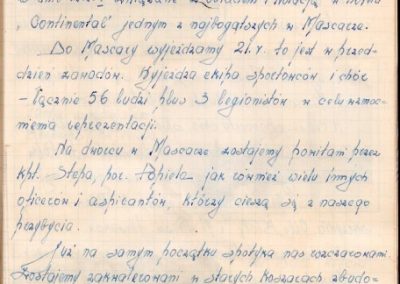 związane z obiadem i kolacją w hotelu
„Continental" jednym z najbogatszych w Mascarze.
Do Mascary wyjeżdzamy 21.V. to jest w przed-
dzień zawodów. Wyjeżdza ekipa sportowców i chór
- łącznie 56 ludzi plus 3 legionistów w celu wzmoc-
nienia reprezentacji.
Na dworcu w Mascarze zostajemy powitani przez
kpt. Stepa, por. jak również wielu innych
oficerów i aspirantów, którzy cieszą się z naszego
przybycia.
Już na samym początku spotyka nas rozczarowanie.
Zostajemy zakwaterowani w starych koszarach zbudo-